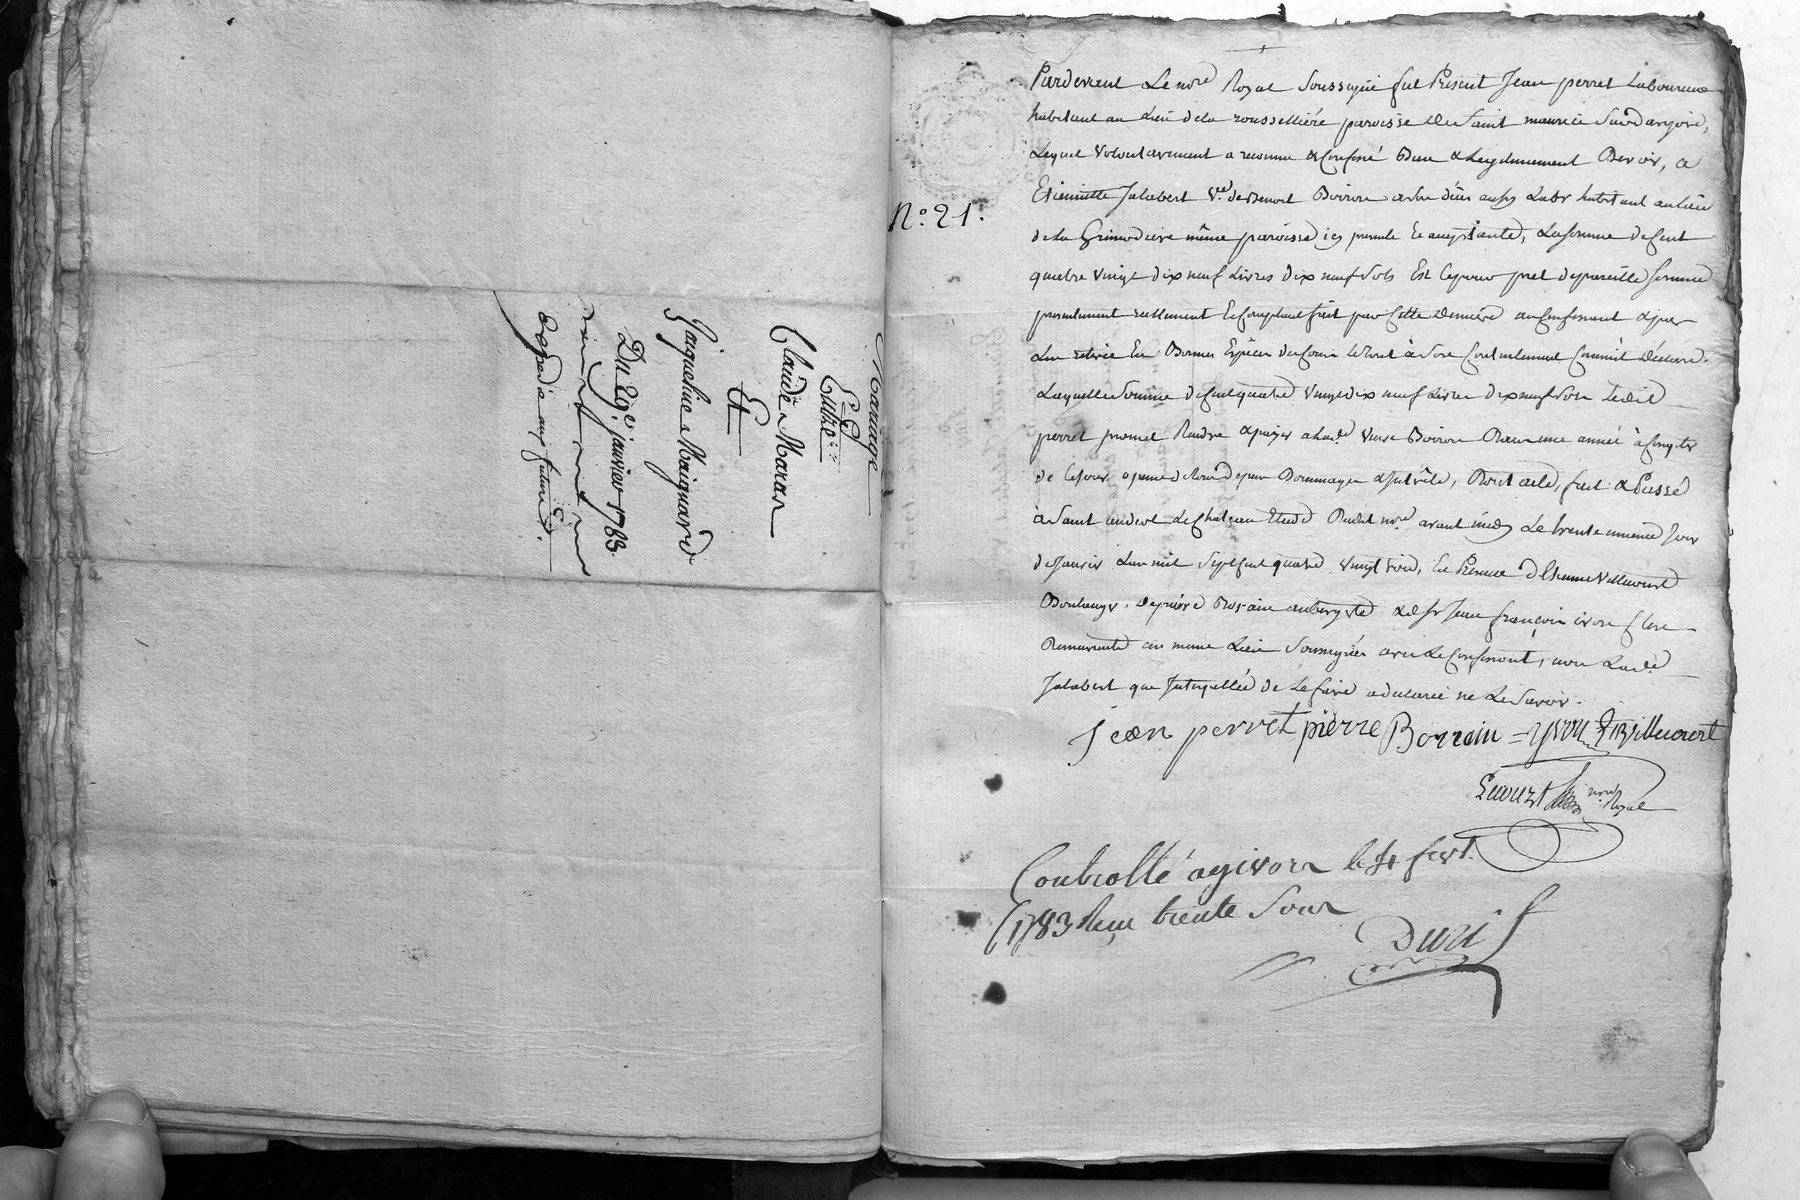 Mariage
Entre
Claude Maras
Et
Jacqueline Maignard
Du 29e janvier 1783
expedie aux futurs
N.o 21.
Pardevant Le nore Royal Soussigné fut Présent Jean perret Laboureur
habitant au Lieu dela roussellière paroisse de Saint maurice Sur dargoire,
Lequel volontairement a reconnu & Confessé Bien & Legitimement Devoir, a
Etiennette Jalabert ve. de Benoit Boiron habitant au Lieu
dela Grimodiere même paroisse icy presente Et acceptante, La somme de Cent
quatre vingt dix neuf Livres dix neuf Sols Et Ce pour pret de pareille Somme
presentement reellement Et Comptant fait par Cette Derniere au Confessant & par
Lui retirée En Bonnes Espèces de Cours Le tout à Son Contentement Comme il déclare.
Laquelle Somme de Cent quatre vingt dix neuf Livres dix neuf Sols Ledit
perret promet Rendre & payer a Lade. veuve Boiron Dans une année à Compter
de Ce jour a peine de tous depens Dommages & Intérêts, Dont acte, fait & Passé
à Saint andeol Le Chateau Etude Dudit nore avant midy Le trente unieme Jour
de Janvier L'an mil Sept Cent quatre vingt trois, En Presence d'Etienne Villecourt
Boulanger, de pierre Borrain aubergiste & de Sr Jean françois ivon Clerc
Demeurants au meme Lieu Soussignés avec Le Confessant, non Lade.
Jalabert qui Interpellée de Le faire a déclaré ne Le Savoir.
jean perret pierre Borrain = yvon E Villecourt
nore Royal
Controllé a givors le 4 fevr.
1783 Reçu trente Sous